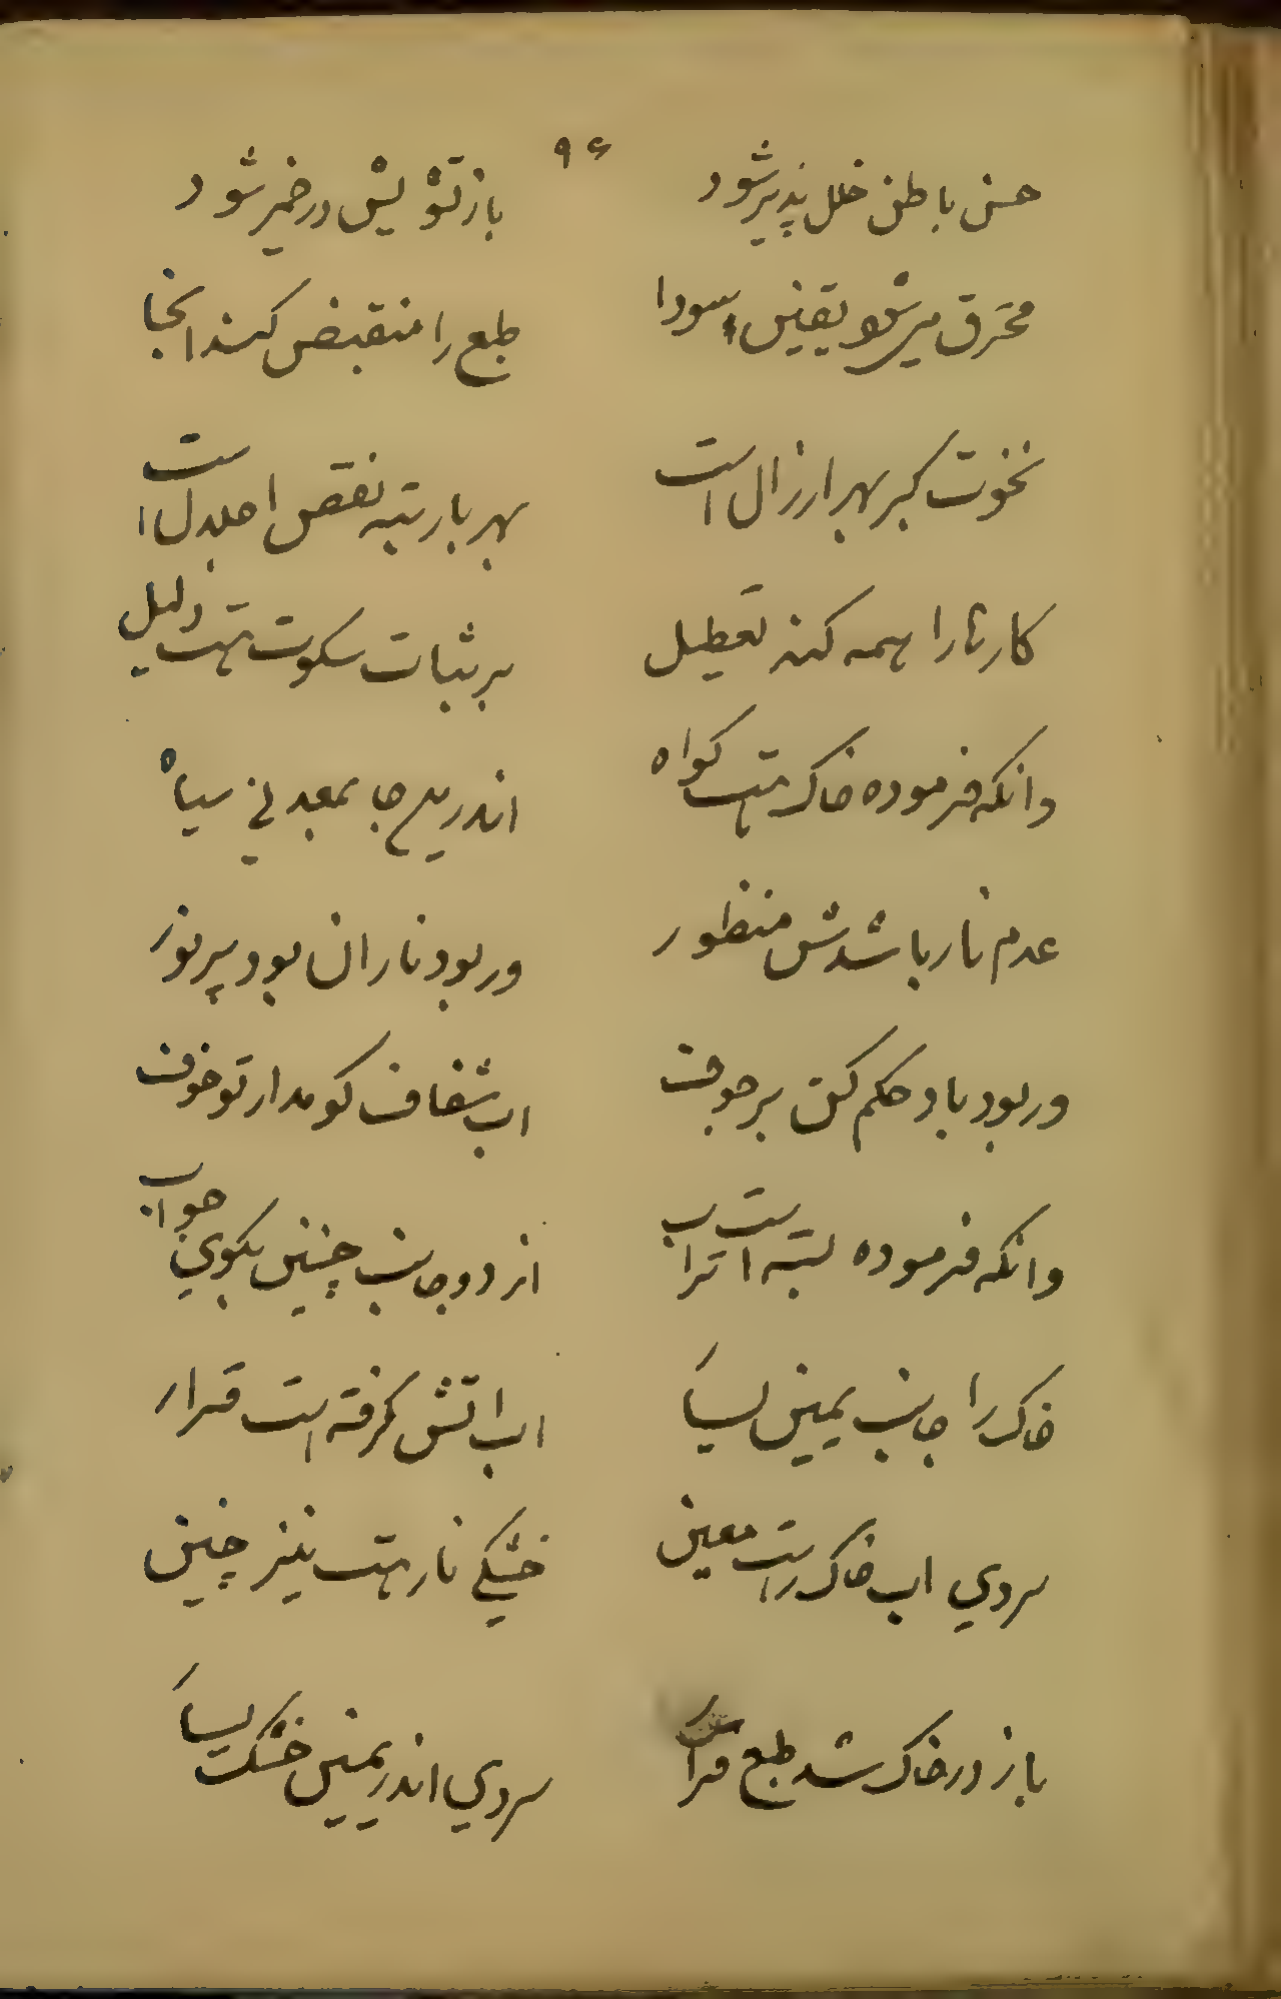 ۹۶
حسن باطن خلل پذیر شود باز تشویش در ضمیر شود
محترق میشود یقین سودا طبع را منقبض کند انجا
نخوت کبر بهر ارزال است بهر با رتبه نقص اجلال است
کارها را همه کند تعطیل بر ثبات سکوت هست دلیل
وانکه فرموده خاک هست کواه اندرین جا بمعدنی سیاه
عدم نار باشدش منظور ور بود نار ان بود پرنور
ور بود باد حکم کن بر جوف اب شفاف کو مدار تو خوف
وانکه فرموده بسته است تراب از دو جانب چنین بکوی جواب
خاک را جانب یمین یسار اب اتش کرفته است قرار
سردی اب خاک راست معین خشکی نار هست نیز چنین
باز در خاک شد طبع قرار سردی اندر یمین خشک یسار